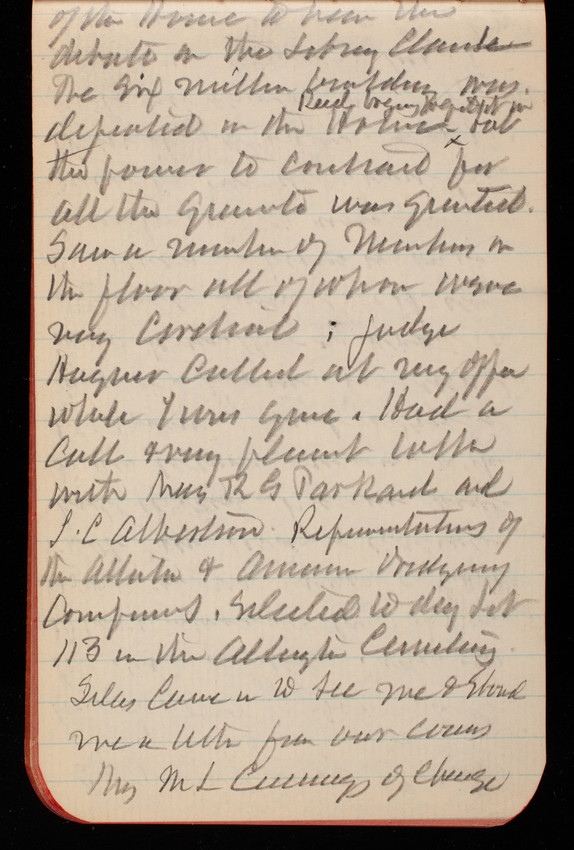 of the House to hear the
debate on the Library Clause
The six million building was
Reed
defeated in the House but
the power to contract for
all the granite was granted.
Saw a number of Members on
the floor all of whom were
very Cordial ; Judge
Called at my office
while I was gone . Had a
Call & very pleasant talk
with Mess R G Packard and
J. C Albertson Representatives of
the Atlantic & American Dredging
Companies . Selected to day Lot
113 in the Arlington Cemetery.
Giles Came in to see me & Showed
me a letter from our cousin
Mrs M L Cummings of Chicago